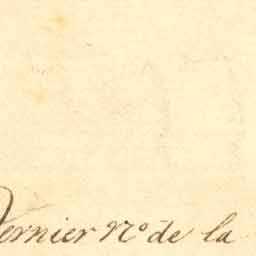 Dernier N.º de la